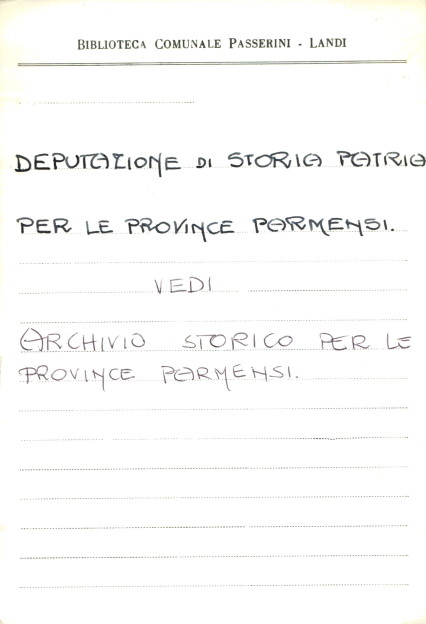 BIBLIOTECA COMUNALE PASSERINI - LANDI
DEPUTAZIONE DI STORIA PATRIA
PER LE PROVINCE PARMENSI.
VEDI
ARCHIVIO STORICO PER LE
PROVINCE PARMENSI.